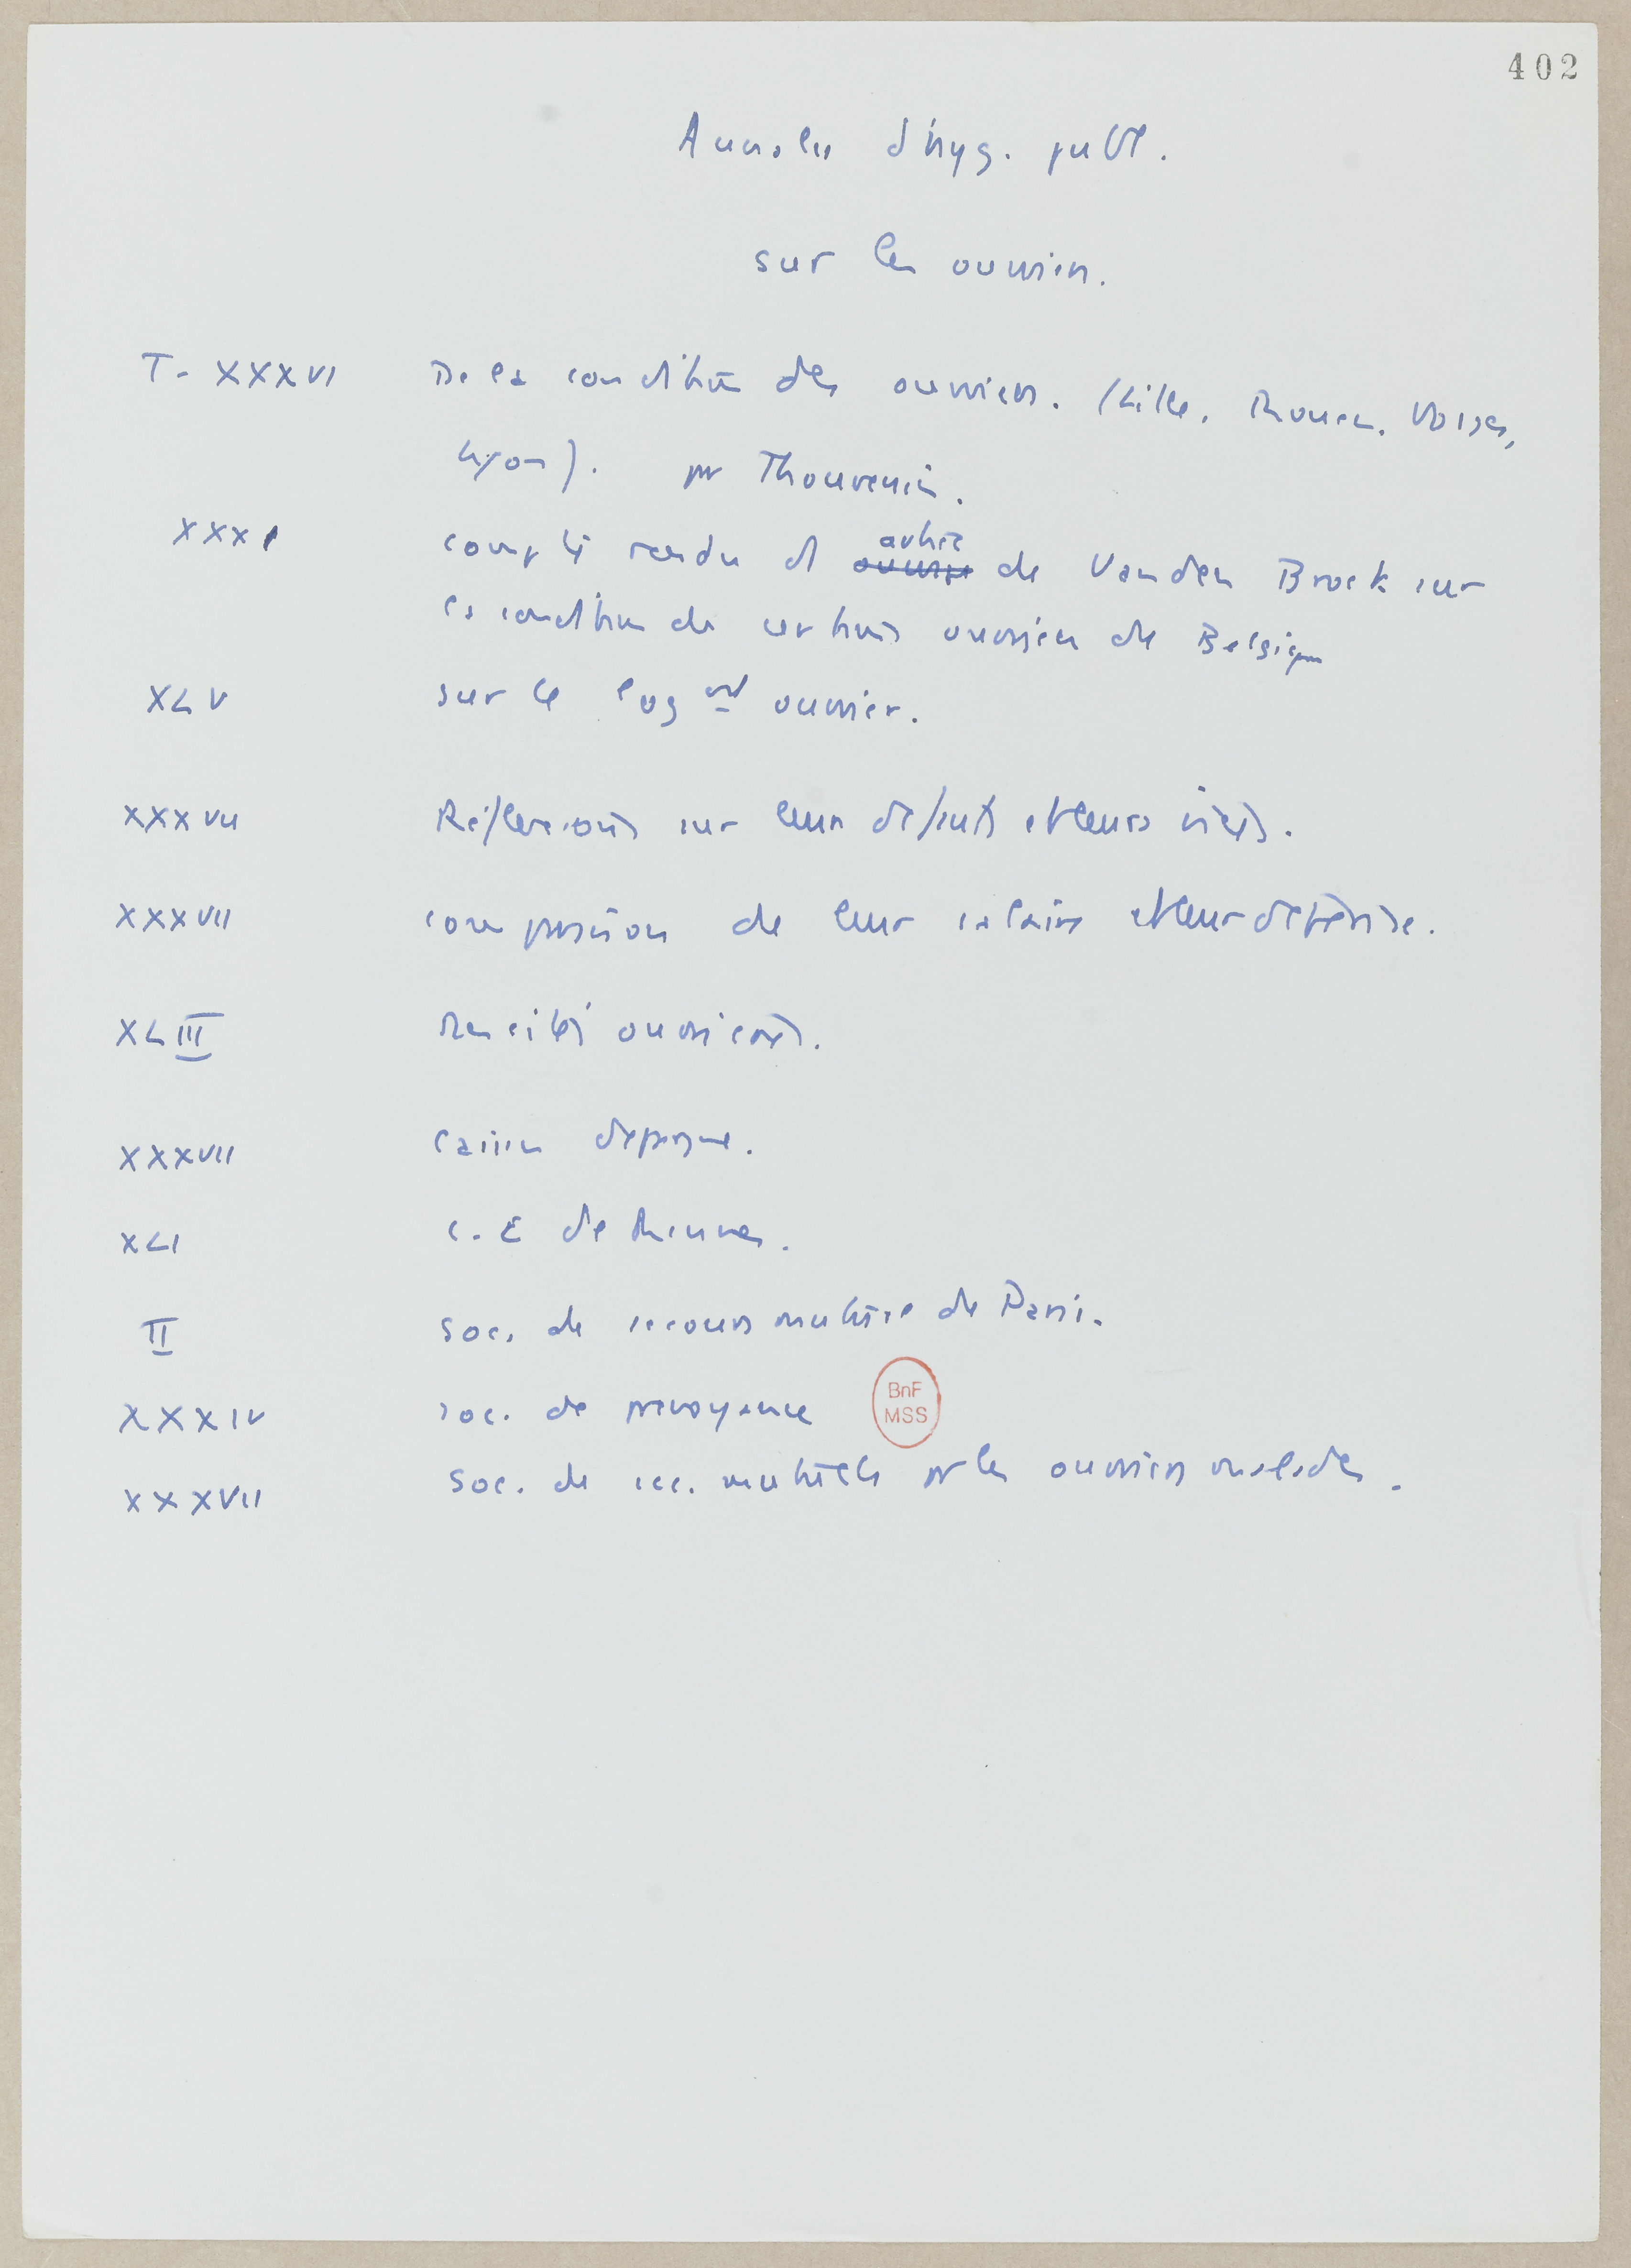 402
Annales d'hyg. publ.
sur les ouvriers.
T. XXXVI De la condition des ouvriers. (Lille, Rouen, Vosges,
Lyon). par Thouvenin.
XXXI compte rendu d article
ouvrier de Van den Broek sur
la condition de certains ouvriers de Belgique
XLV sur le logmt ouvrier.
XXXVII Réflexions sur leurs défauts et leurs vices.
XXXVII composition de leur salaire et leur dépense.
XLIII cités ouvrières.
XXXVII Caisses d'épargne.
XLI C. E de Rennes.
II Soc. de secours mutuel de Paris.
BnF
MSS
XXXIV Soc. de prévoyance
XXXVII Soc. de sec. mutuels pr les ouvriers malades.